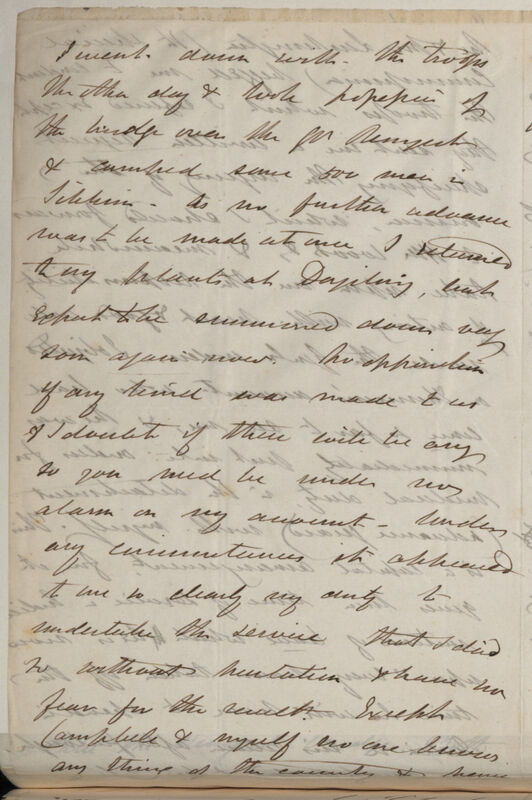 I went down with the troops
the other day & took possession of
the bridge over the Gt Rungeet
& camped some 500 men in
Sikkim. As no further advance
was to be made at once I returned
to my plants at Dorjiling, but
expect to be summoned down very
soon again now. No opposition
of any kind was made to us
& I doubt if there will be any
so you need be under no
alarm on my account – Under
any circumstances it appeared
to me so clearly my duty to
undertake this service that I did
so without hesitation & have no
fear for the result. Except
Campbell & myself no one knows
any thing of the country &